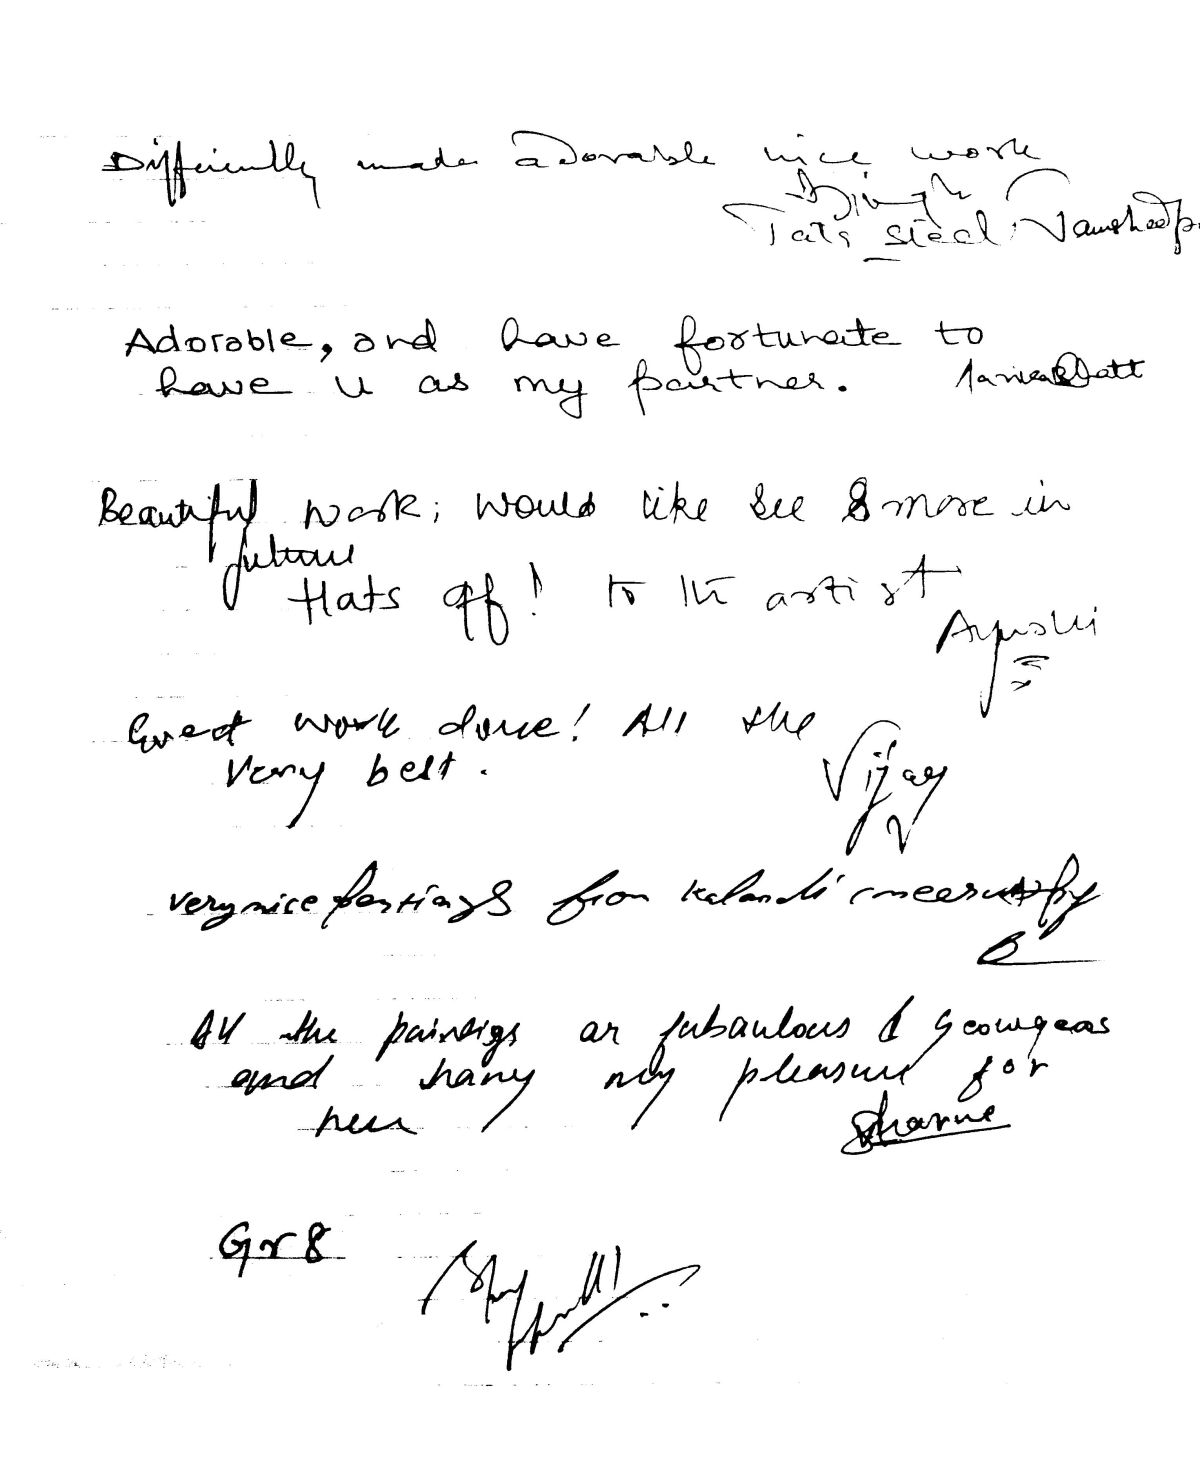 Differently made adorable nice work
Singh
Tata steel Jamshedp
Adorable, and have fortunate to
have u as my partner. Datt
Beautiful work; would like see & more in
future
Hats off! to the artist
Ayushi
Great work done! All the
very best.
Vijay
very nice pantings from Kalandi
All the paintigs ar fabaulous & geourgeas
and hany my pleasure for
her
Sharme
Gr8